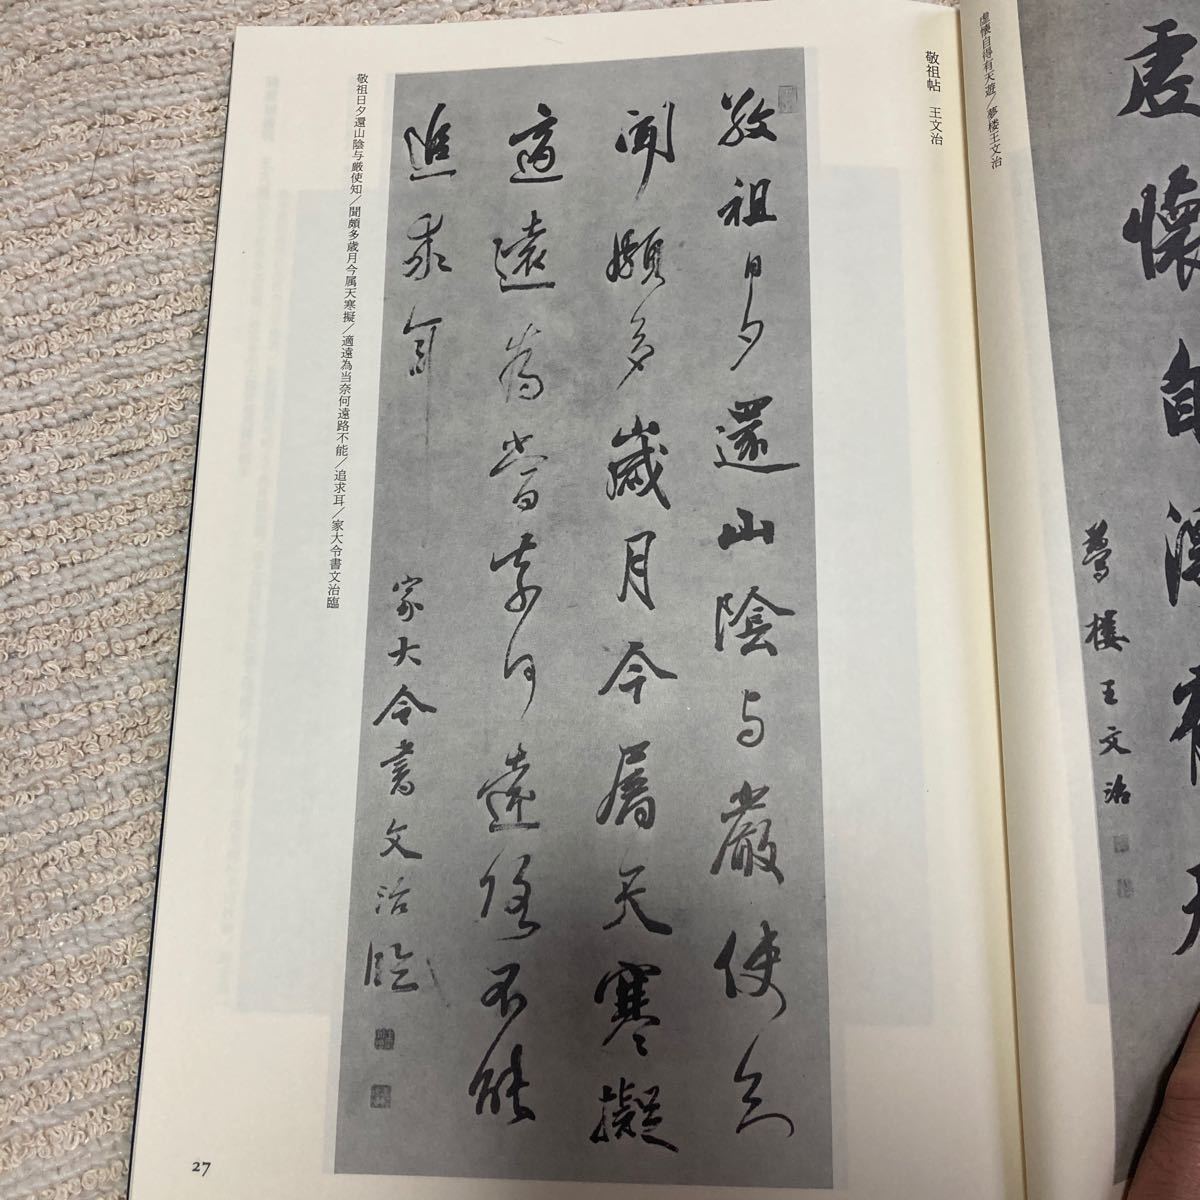 虚懐自得有天遊／夢楼王文治
虚懐自得
夢楼王文治
敬祖帖　王文治
敬祖日夕還山陰与嚴使知
聞頗多歳月今属天寒擬
適遠為当奈何遠路不能
追求耳
家大令書文治臨
敬祖日夕還山陰与厳使知／聞頗多歳月今属天寒擬／適遠為当奈何遠路不能／追求耳／家大令書文治臨
27